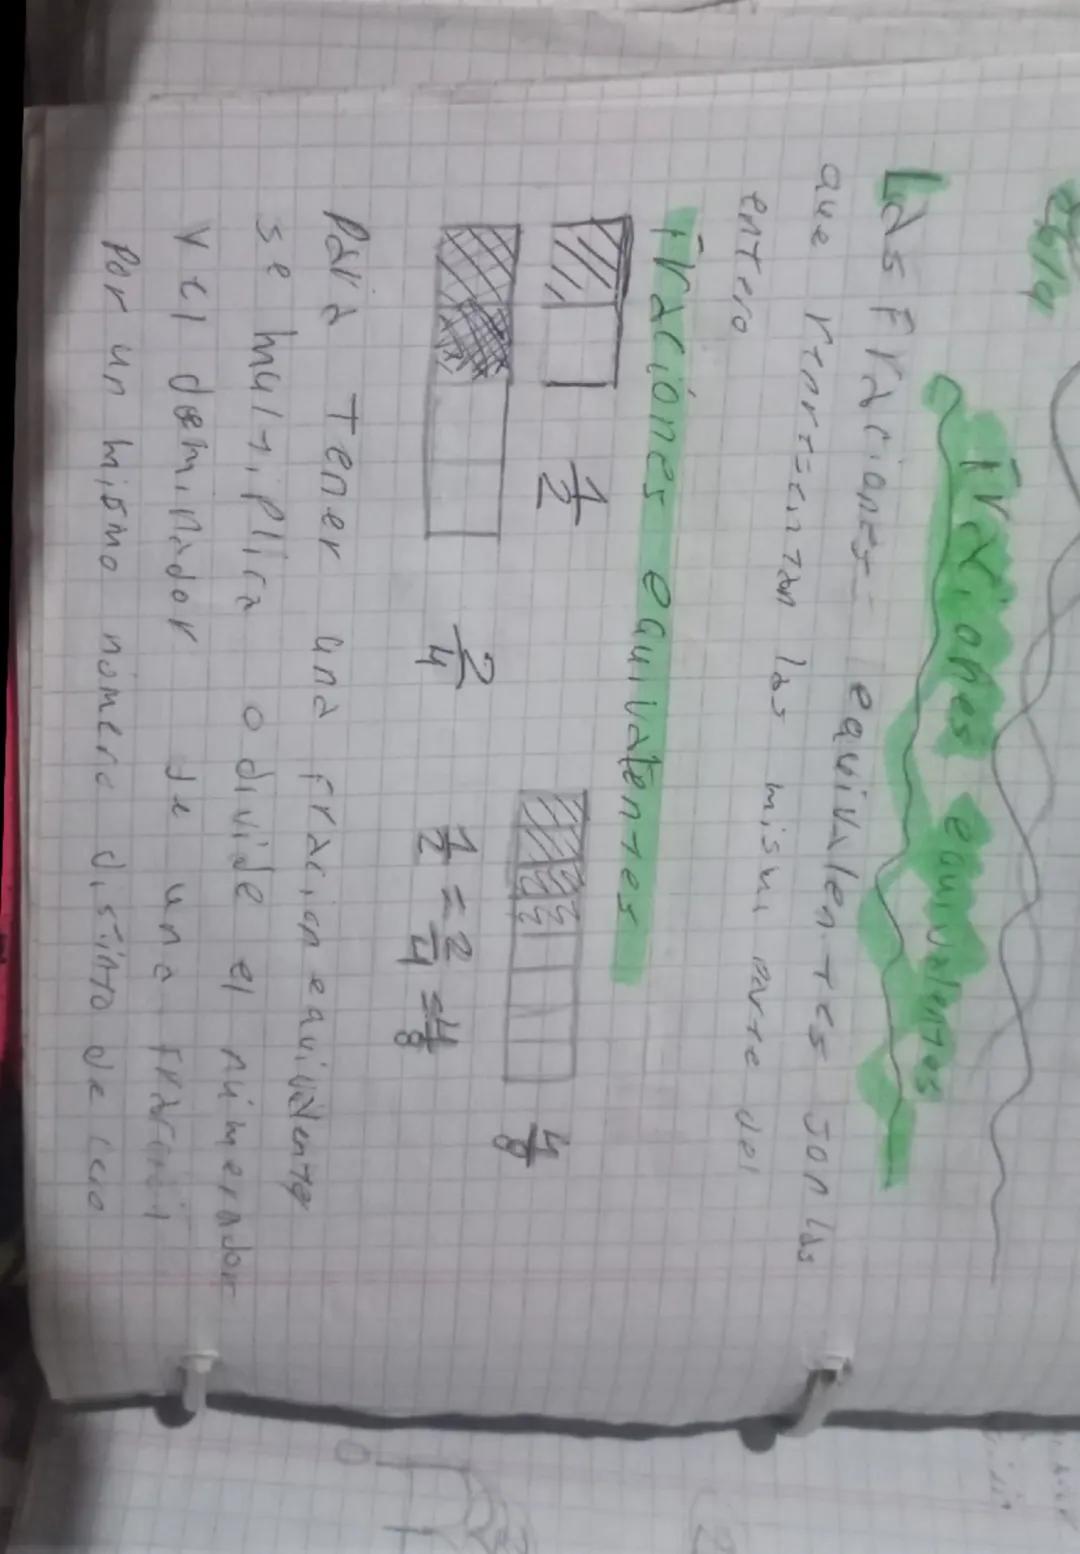 Fraciones equivalentes
Las Fraciones equivalentes son las
que representan las misma parte del
entero
Fraciónes equivalentes
1/2
4/8
2/4
1/2 = 2/4 = 4/8
Para tener una fracion equivalente
se multiplica o divide el numerador
y el deminador de una
por un mismo nómero distinto de cero
0